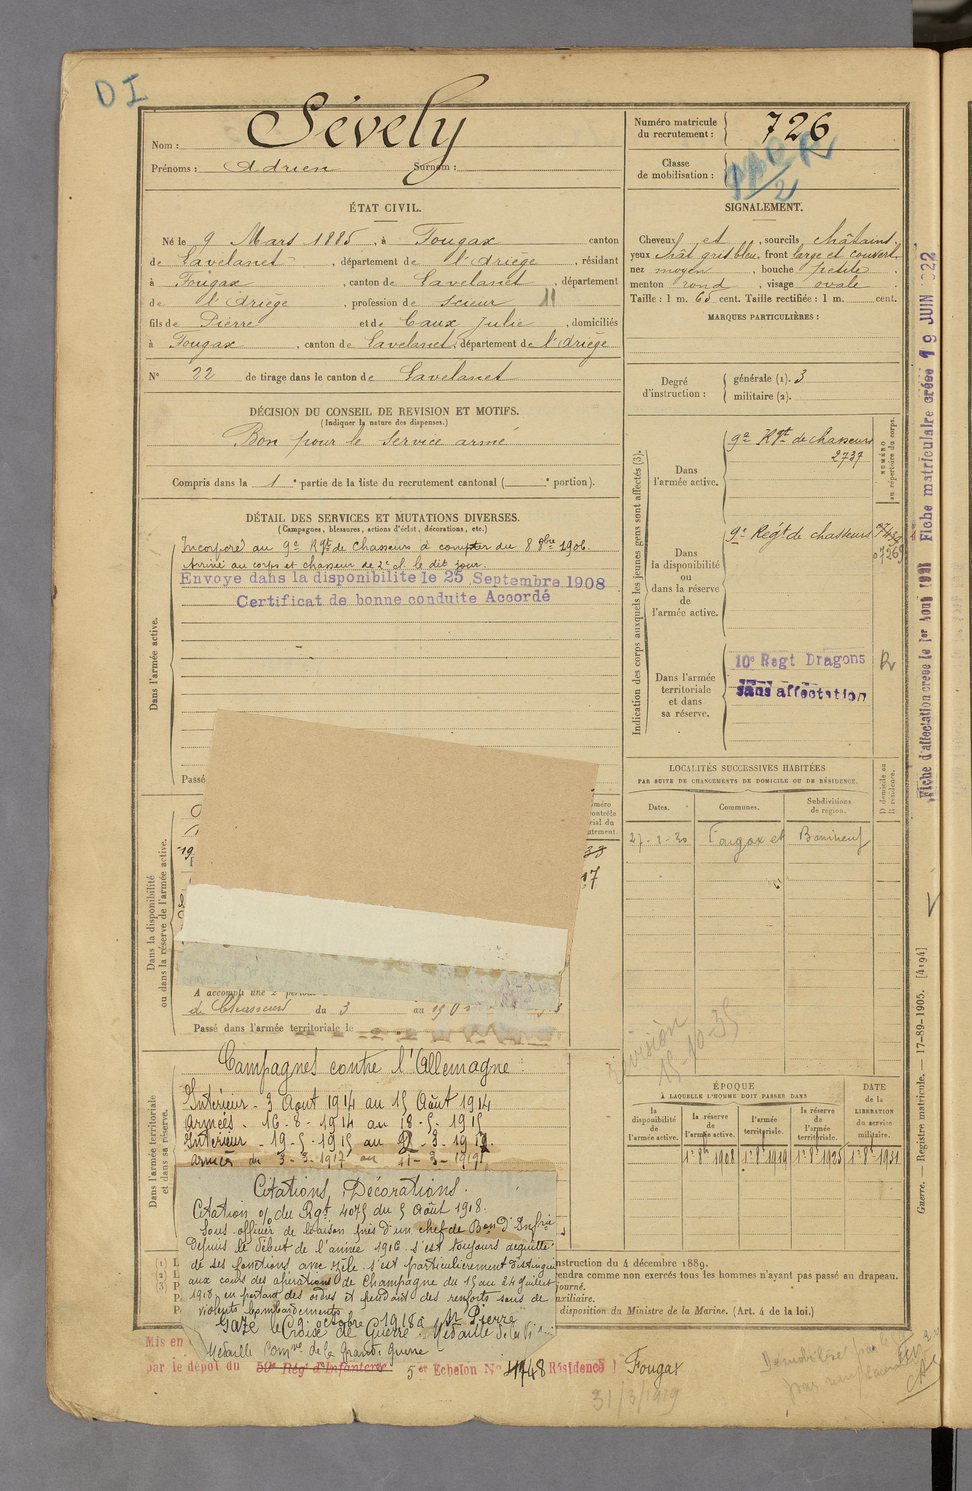 D I
Nom : Sévely
Prénoms : Adrien Surnom :
Numéro matricule du recrutement : 726
Classe de mobilisation :
ÉTAT CIVIL.
Né le 9 Mars 1885, à Fougax canton
de Lavelanet, département de l'Ariège, résidant
à Fougax, canton de Lavelanet, département
de l'Ariège, profession de scieur 11
fils de Pierre et de Caux Julie, domiciliés
à Fougax, canton de Lavelanet, département de l'Ariège
N° 22 de tirage dans le canton de Lavelanet
SIGNALEMENT.
Cheveux et, sourcils châtains,
yeux chât gris bleu, front large et couvert,
nez moyen, bouche petite,
menton rond, visage ovale.
Taille : 1 m. 65 cent. Taille rectifiée : 1 m. cent.
MARQUES PARTICULIÈRES :
Degré d'instruction : générale (1). 3
militaire (2).
DÉCISION DU CONSEIL DE REVISION ET MOTIFS.
(Indiquer la nature des dispenses.)
Bon pour le service armé
Compris dans la 1e partie de la liste du recrutement cantonal ( e portion).
DÉTAIL DES SERVICES ET MUTATIONS DIVERSES.
(Campagnes, blessures, actions d'éclat, décorations, etc.)
Dans l'armée active.
Incorporé au 9e Rgt de Chasseurs à compter du 8 8bre 1906.
Arrivé au corps et chasseur de 2e cl. le dit jour.
Envoye dans la disponibilite le 25 Septembre 1908
Certificat de bonne conduite Accordé
Passé
Indication des corps auxquels les jeunes gens sont affectés (3).
NUMÉRO au répertoire du corps.
Dans l'armée active.
9e Rgt de chasseurs
2737
Dans la disponibilité ou dans la réserve de l'armée active.
9e Régt de chasseurs
Dans l'armée territoriale et dans sa réserve.
10e Regt Dragons
sans affectation
R
LOCALITÉS SUCCESSIVES HABITÉES
PAR SUITE DE CHANGEMENTS DE DOMICILE OU DE RÉSIDENCE.
D domicile ou R résidence.
Dates. Communes. Subdivisions de région.
Fougax et Barrineuf
Dans la disponibilité ou dans la réserve de l'armée active.
A accompli une 2e
de Chasseurs du 3 au 19
Passé dans l'armée territoriale le
Dans l'armée territoriale et dans sa réserve.
Campagnes contre l'Allemagne :
Intérieur - 3 Aout 1914 au 15 Août 1914
Armées - 16 - 8 - 1914 au 18 - 5 - 1915
Intérieur - 19 - 5 - 1915 au 2 - 3 - 1917.
Armées du 3-3-1917 au
Citations, Décorations.
Citation o/ du Rgt 4075 du 5 Août 1918.
Sous officier de liaison près d'un chef de Bon d'Infrie
Depuis le début de l'année 1916 s'est toujours acquitté
de ses fonctions avec zèle s'est particulièrement distingué
aux cours des opérations de Champagne du 15 au 24 Juillet
1918 en portant des ordres et pendant des renforts sous de
violents bombardements
Gazé le 9 octobre 1918 à St Pierre
Croix de Guerre. Médaille de la
Médaille Comve de la Grande guerre
ÉPOQUE
À LAQUELLE L'HOMME DOIT PASSER DANS
la disponibilité de l'armée active.
la réserve de l'armée active.
l'armée territoriale.
la réserve de l'armée territoriale.
DATE DE LA LIBÉRATION du service militaire.
1er 8bre 1908 1er 8bre 1919 1er 8bre 1925 1er 8bre 1931
nstruction du 4 décembre 1889.
endra comme non exercés tous les hommes n'ayant pas passé au drapeau.
journé.
uxiliaire.
disposition du Ministre de la Marine. (Art. 4 de la loi.)
Mis en
par le dépôt du 59e Rég d'Infanterie 5 er Echelon N° 4748 Résidence Fougax
31/3/1919
Fiche d'affectation créée le 1er Aout 1921
Fiche matriculaire créée 19 JUIN 1922
Guerre. — Registre matricule. — 17-89-1905. [4194]